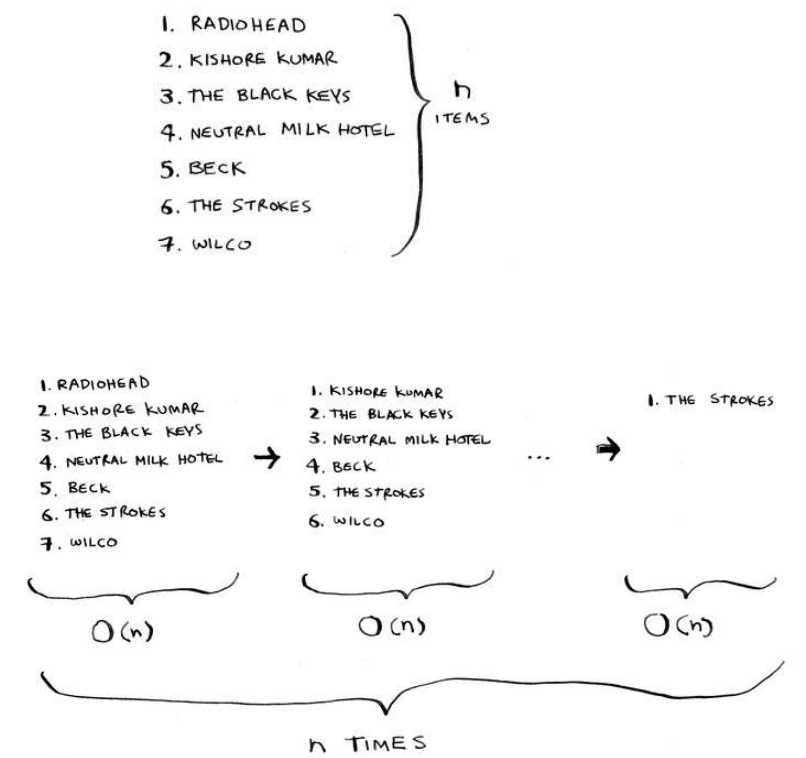 1. RADIOHEAD
2. KISHORE KUMAR
3. THE BLACK KEYS
4. NEUTRAL MILK HOTEL
5. BECK
6. THE STROKES
7. WILCO
n
ITEMS
1. RADIOHEAD
2. KISHORE KUMAR
3. THE BLACK KEYS
4. NEUTRAL MILK HOTEL
5. BECK
6. THE STROKES
7. WILCO
→
1. KISHORE KUMAR
2. THE BLACK KEYS
3. NEUTRAL MILK HOTEL
4. BECK
5. THE STROKES
6. WILCO
... →
1. THE STROKES
O(n)
O(n)
O(n)
n TIMES